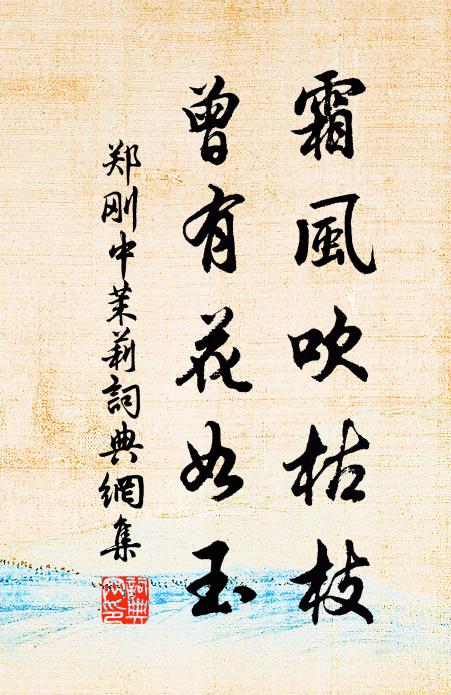 霜風吹枯枝
曾有花如玉
郑刚中茉莉詞典網集